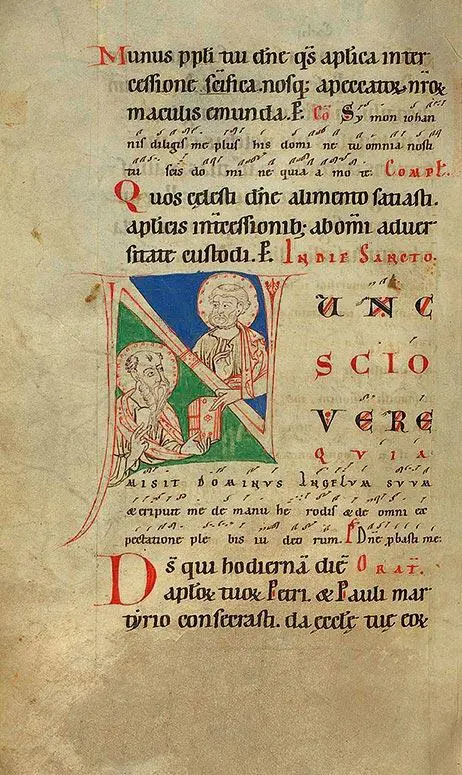 Munus ppli tui dn̄e qs̄ aplica inter
cessione sc̄ifica. nosq; apeccatoꝝ nr̄oꝝ
maculis emunda. P. Cō Sy mon iohan
nis diligis me plus his domi ne tu omnia nosti
tu scis do mi ne quia a mo te. Compl̄.
Quos celesti dn̄e alimento satiasti.
aplicis intcessionib; abom̄i aduer
sitate custodi. P. In die Sancto.
NUNC
SCIO
VERE
QVIA
MISIT DOMINUS ANGELVM SVVM
& eripuit me de manu he rodis & de omni ex
pectatione ple bis iu deo rum. P Dn̄e pbasti me.
Ds̄ qui hodiernā diē Orat̄.
aploꝝ tuoꝝ Petri. & Pauli mar
tyrio consecrasti. da eccl̄e tuę eoꝝ